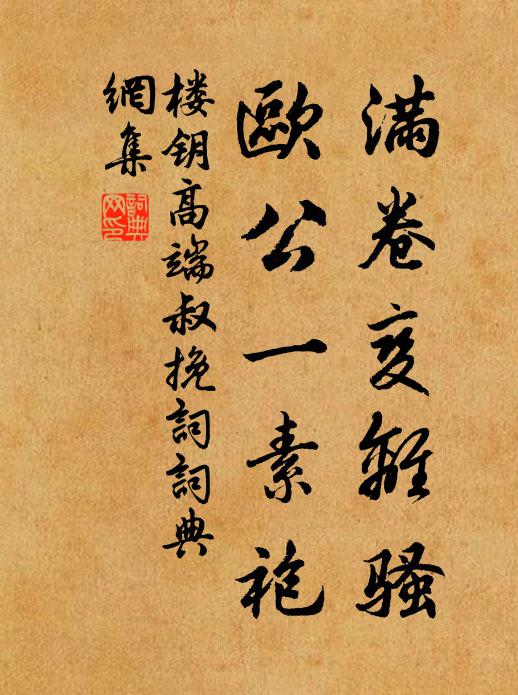 满卷变离骚
欧公一素袍
楼钥高端叔挽词词典
網集
詞典
网印